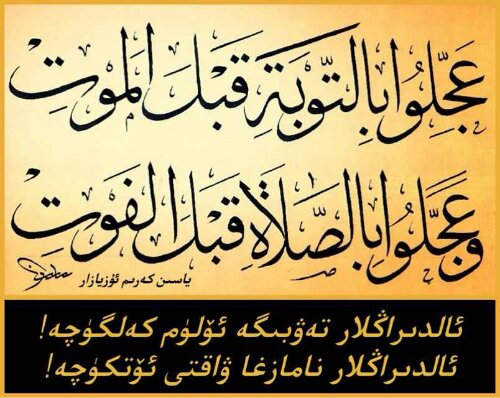 عَجِّلُوا بِالتَّوْبَةِ قَبْلَ الْمَوْتِ
وَعَجِّلُوا بِالصَّلَاةِ قَبْلَ الْفَوْتِ
ياسىن كەرىم ئۇزيازار
ئالدىراڭلار تەۋبىگە ئۆلۈم كەلگۈچە!
ئالدىراڭلار نامازغا ۋاقتى ئۆتكۈچە!